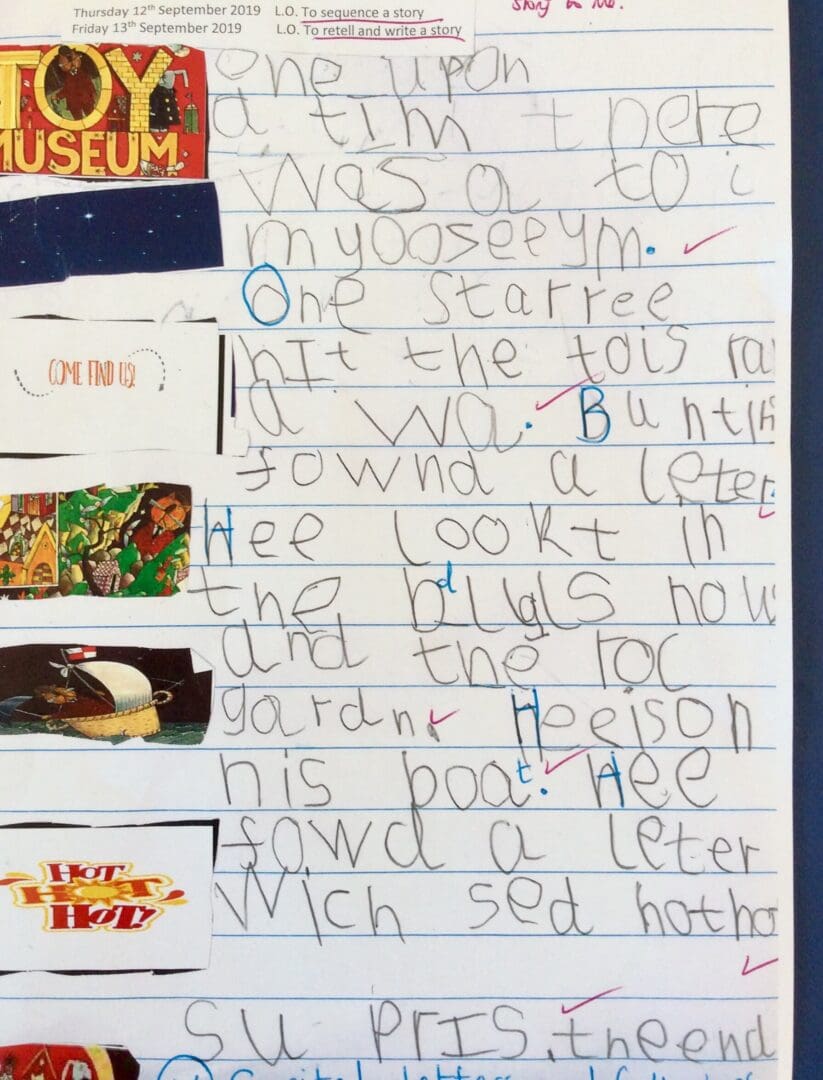 Thursday 12th September 2019 L.O. To sequence a story
Friday 13th September 2019 L.O. To retell and write a story
story to me.
TOY
MUSEUM
one upon
a tim there
was a toi
myooseeym.
One starree
nIt the tois ra
a wa. Buntin
COME FIND US!
fownd a leter.
Hee lookt in
the bdlgls how
and the roc
gardn. Hee ison
his boat. Hee
fowd a leter
HOT
HOT
HOT!
Wich sed hotho
su PrIS. the end